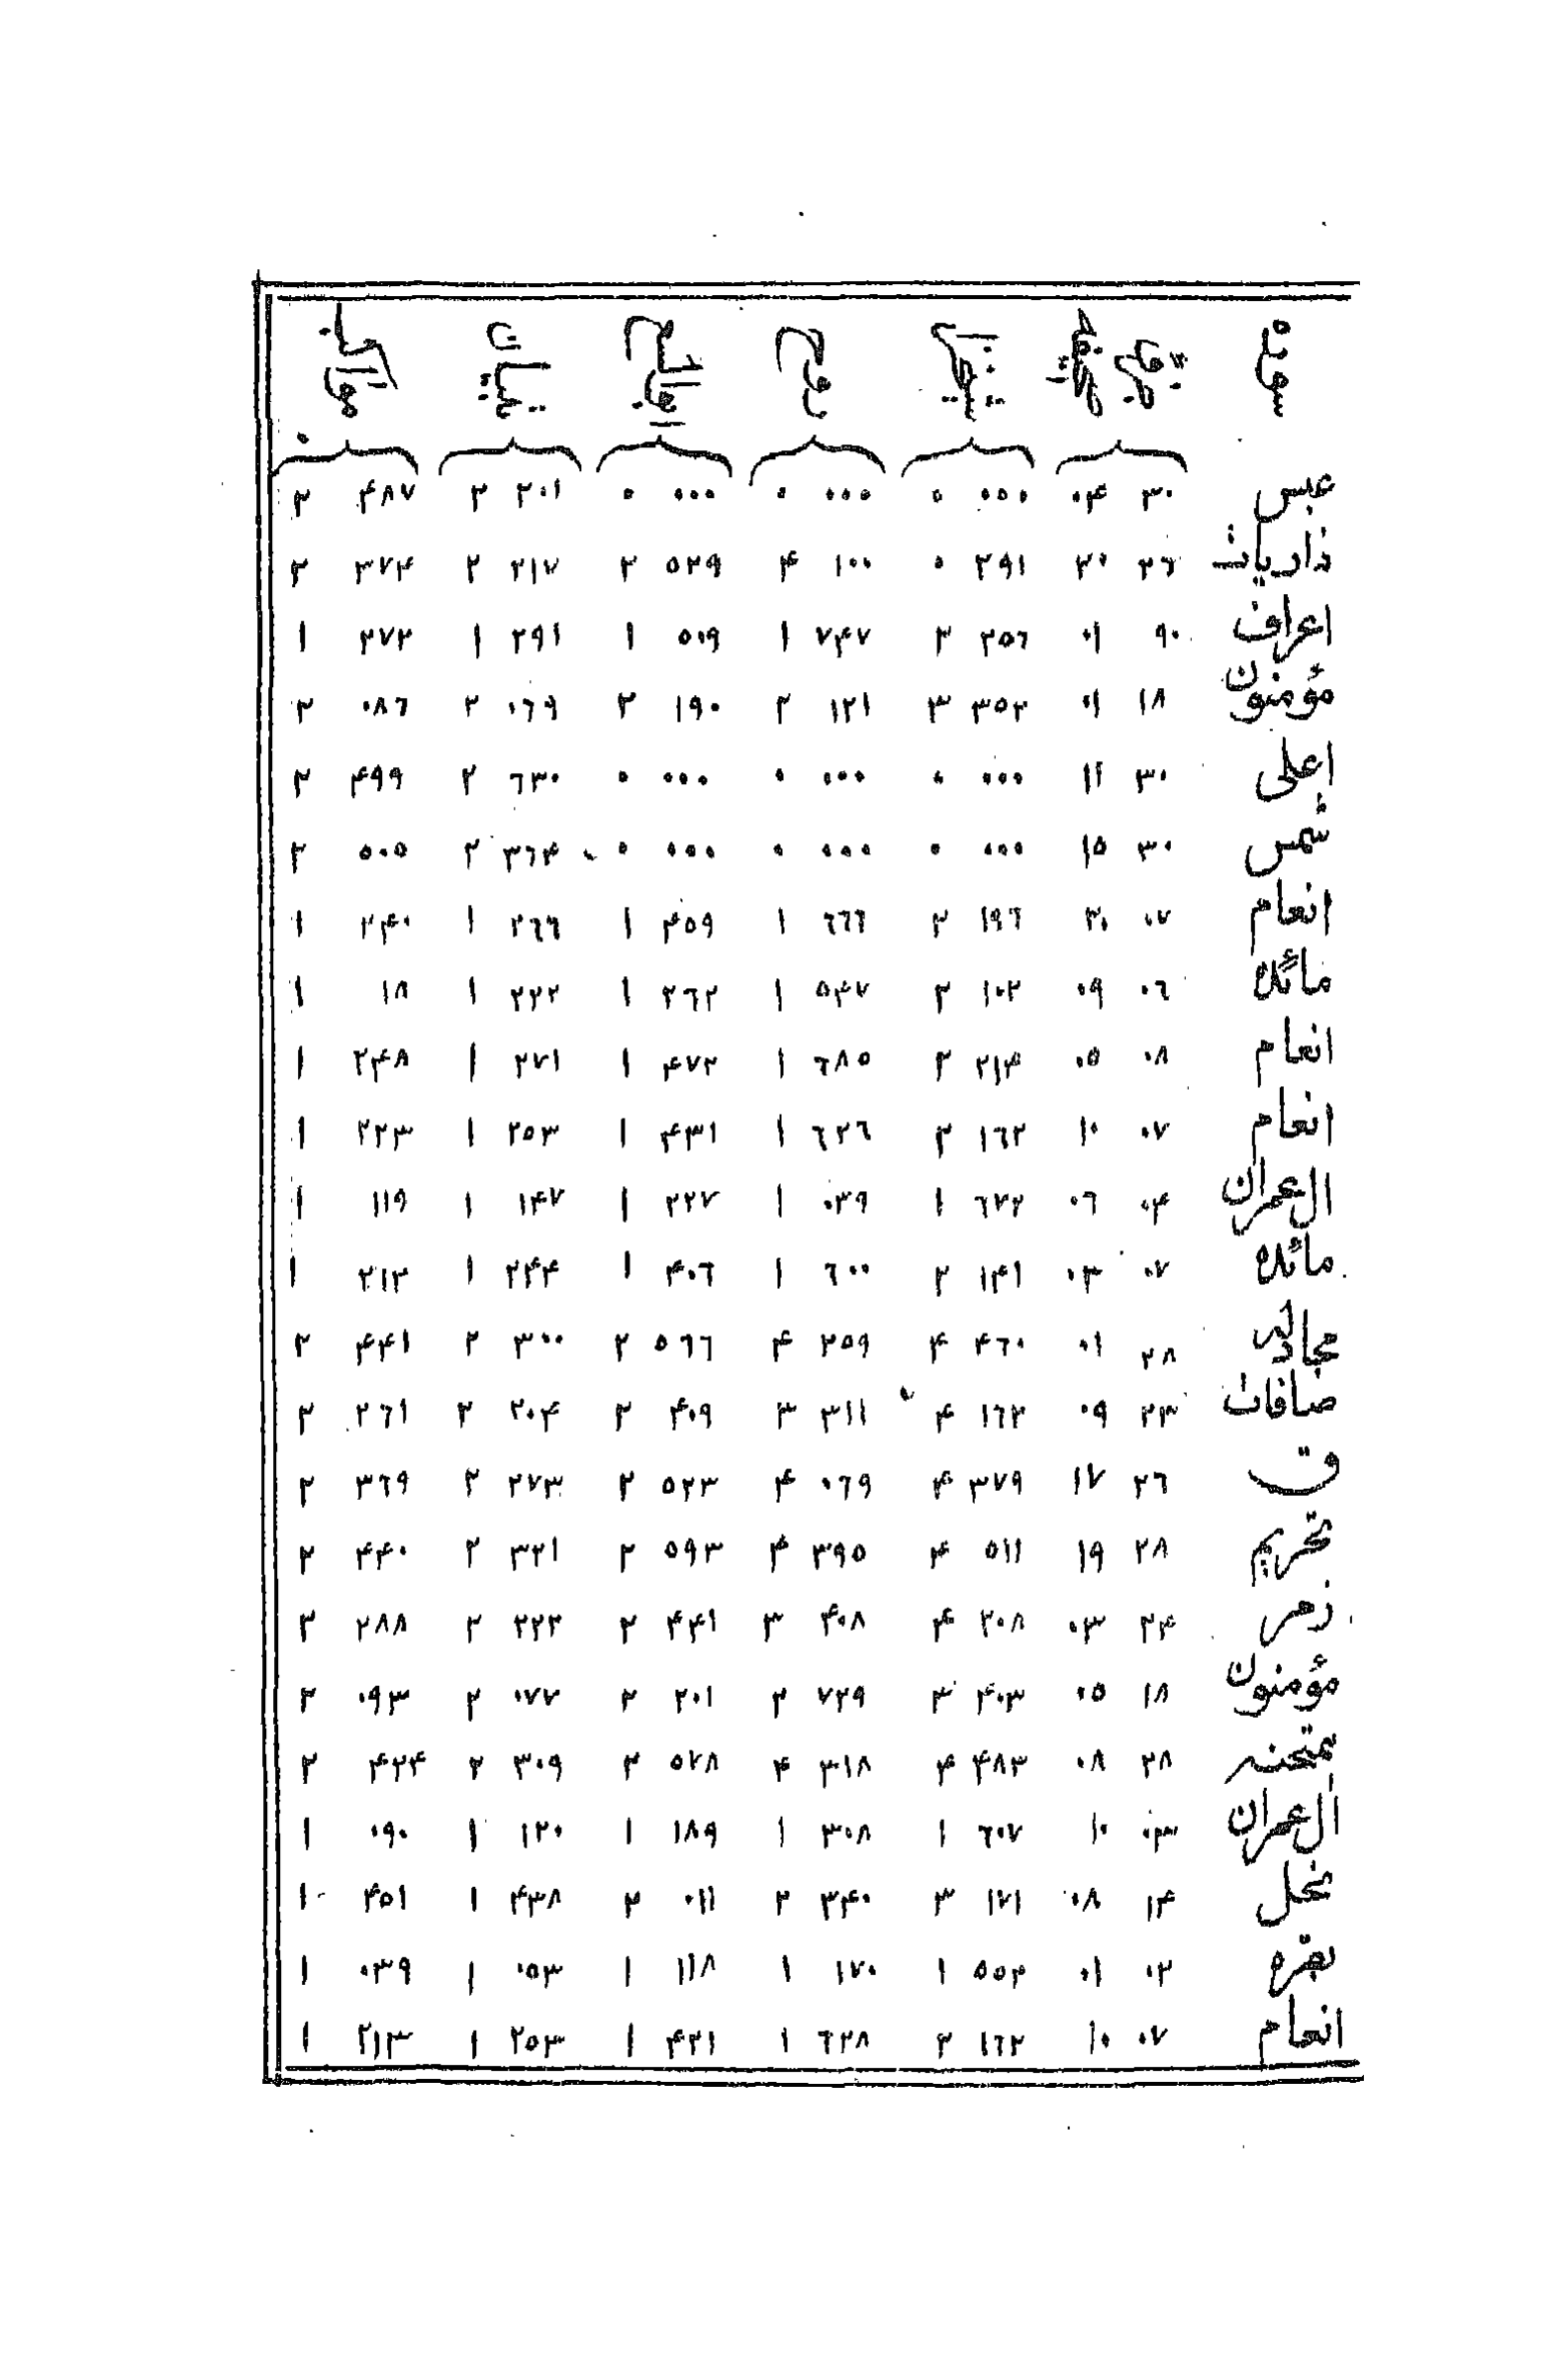 سوره
عبس ۳۰ ۰۴ ۰۰۰ ۰ ۰۰۰ ۰ ۰۰۰ ۰ ۲۰۱ ۲ ۴۸۷ ۲
ذاریات ۲٦ ۲۰ ۲۹۱ ۰ ۱۰۰ ۴ ۵۲۹ ۲ ۲۱۷ ۲ ۳۷۴ ۲
اعراف ۹۰ ۰۱ ۲۵٦ ۲ ۷۴۷ ۱ ۵۰۹ ۱ ۲۹۱ ۱ ۲۷۲ ۱
مؤمنون ۱۸ ۰۱ ۳۵۲ ۳ ۱۲۱ ۲ ۱۹۰ ۲ ۰٦۹ ۲ ۰۸٦ ۲
اعلی ۳۰ ۱۱ ۰۰۰ ۰ ۰۰۰ ۰ ۰۰۰ ۰ ٦۳۰ ۲ ۴۹۹ ۲
شمس ۳۰ ۱۵ ۰۰۰ ۰ ۰۰۰ ۰ ۰۰۰ ۰ ۳٦۴ ۲ ۵۰۵ ۲
انعام ۰۷ ۲۰ ۱۹٦ ۲ ٦٦٦ ۱ ۴۵۹ ۱ ۲٦٦ ۱ ۲۴۰ ۱
مائده ۰٦ ۰۹ ۱۰۲ ۲ ۵۴۷ ۱ ۲٦۲ ۱ ۲۲۲ ۱ ۱۸ ۱
انعام ۰۸ ۰۵ ۲۱۴ ۲ ٦۸۵ ۱ ۴۷۲ ۱ ۲۷۱ ۱ ۲۴۸ ۱
انعام ۰۷ ۱۰ ۱٦۲ ۲ ٦۲٦ ۱ ۴۳۱ ۱ ۲۵۳ ۱ ۲۲۳ ۱
ال عمران ۰۴ ۰٦ ٦۷۲ ۱ ۰۳۹ ۱ ۲۲۷ ۱ ۱۴۷ ۱ ۱۱۹ ۱
مائده ۰۷ ۰۳ ۱۴۱ ۲ ٦۰۰ ۱ ۴۰٦ ۱ ۲۴۴ ۱ ۲۱۲ ۱
مجادله ۲۸ ۰۱ ۴٦۰ ۴ ۲۵۹ ۴ ۵٦٦ ۲ ۳۰۰ ۲ ۴۴۱ ۲
صافات ۲۳ ۰۹ ۱٦۲ ۴ ۳۱۱ ۳ ۴۰۹ ۲ ۲۰۴ ۲ ۲٦۱ ۲
ق ۲٦ ۱۷ ۳۷۹ ۴ ۰٦۹ ۴ ۵۲۳ ۲ ۲۷۳ ۲ ۳٦۹ ۲
تحریم ۲۸ ۱۹ ۵۱۱ ۴ ۳۹۵ ۴ ۵۹۳ ۲ ۳۲۱ ۲ ۴۴۰ ۲
زمر ۲۴ ۰۳ ۲۰۸ ۴ ۴۰۸ ۳ ۴۴۱ ۲ ۲۲۲ ۲ ۲۸۸ ۲
مؤمنون ۱۸ ۰۵ ۴۰۳ ۳ ۷۲۹ ۲ ۲۰۱ ۲ ۰۷۲ ۲ ۰۹۳ ۲
ممتحنه ۲۸ ۰۸ ۴۸۳ ۴ ۳۱۸ ۴ ۵۷۸ ۲ ۳۰۹ ۲ ۴۲۴ ۲
ال عمران ۰۳ ۱۰ ٦۰۷ ۱ ۳۰۸ ۱ ۱۸۹ ۱ ۱۲۰ ۱ ۰۹۰ ۱
نحل ۱۴ ۰۸ ۱۷۱ ۳ ۳۴۰ ۲ ۰۱۱ ۲ ۴۳۸ ۱ ۴۵۱ ۱
بقره ۰۲ ۰۱ ۵۵۲ ۱ ۱۷۰ ۱ ۱۱۸ ۱ ۰۵۳ ۱ ۰۳۹ ۱
انعام ۰۷ ۱۰ ۱٦۲ ۲ ٦۲۸ ۱ ۴۲۱ ۱ ۲۵۳ ۱ ۲۱۳ ۱